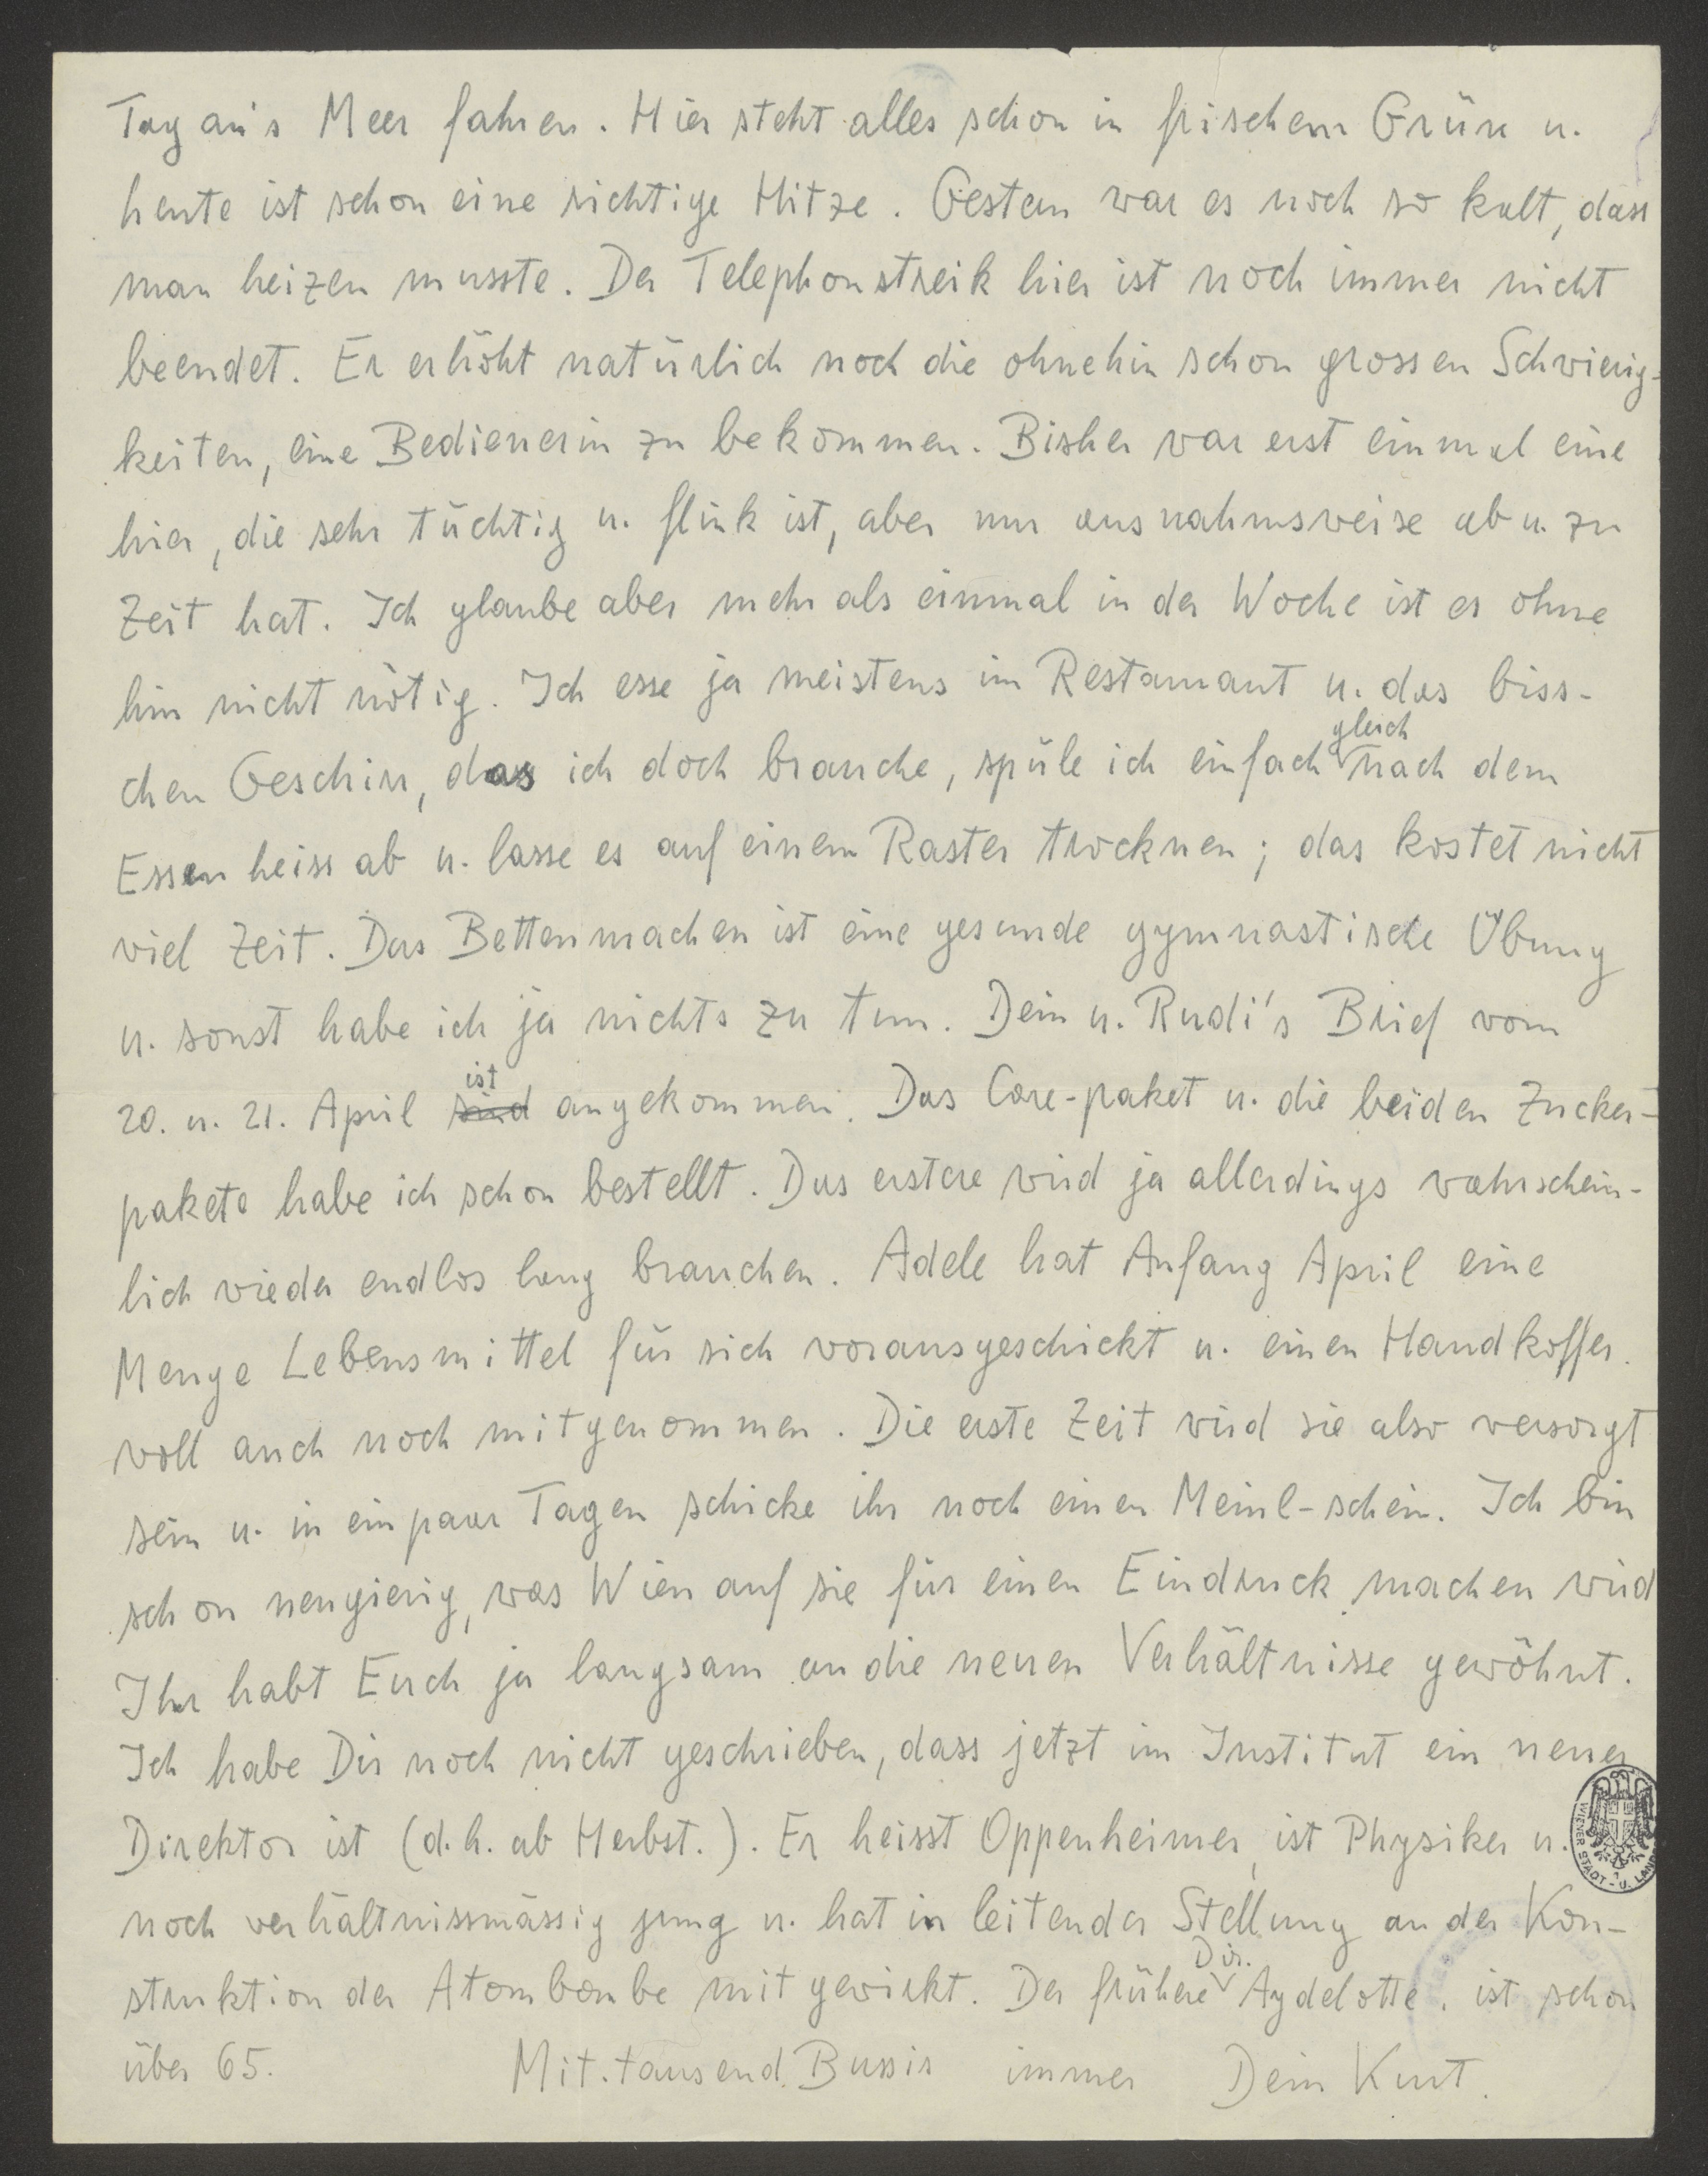 Tag an's Meer fahren. Hier steht alles schon in frischem Grün u.
heute ist schon eine richtige Hitze. Gestern war es noch so kalt, dass
man heizen musste. Der Telephonstreik hier ist noch immer nicht
beendet. Er erhöht natürlich noch die ohnehin schon grossen Schwierig-
keiten, eine Bedienerin zu bekommen. Bisher war erst einmal eine
hier, die sehr tüchtig u. flink ist, aber nur ausnahmsweise ab u. zu
Zeit hat. Ich glaube aber mehr als einmal in der Woche ist es ohne
hin nicht nötig. Ich esse ja meistens im Restaurant u. das biss-
chen Geschirr, das ich doch brauche, spüle ich einfach gleich nach dem
Essen heiss ab u. lasse es auf einem Raster trocknen; das kostet nicht
viel Zeit. Das Bettenmachen ist eine gesunde gymnastische Übung
u. sonst habe ich ja nichts zu tun. Dein u. Rudi's Brief vom
20. u. 21. April sind ist angekommen. Das Care-paket u. die beiden Zucker-
pakete habe ich schon bestellt. Das erstere wird ja allerdings wahrschein-
lich wieder endlos lang brauchen. Adele hat Anfang April eine
Menge Lebensmittel für sich vorausgeschickt u. einen Handkoffer
voll auch noch mitgenommen. Die erste Zeit wird sie also versorgt
sein u. in ein paar Tagen schicke ihr noch einen Meinl-schein. Ich bin
schon neugierig, was Wien auf sie für einen Eindruck machen wird
Ihr habt Euch ja langsam an die neuen Verhältnisse gewöhnt.
Ich habe Dir noch nicht geschrieben, dass jetzt im Institut ein neuer
Direktor ist (d.h. ab Herbst.). Er heisst Oppenheimer, ist Physiker u.
noch verhältnissmässig jung u. hat in leitender Stellung an der Kon-
struktion der Atombombe mitgewirkt. Der frühere Dir. Aydelotte, ist schon
über 65. Mit tausend Bussis immer Dein Kurt.
WIENER STADT- U. LAN